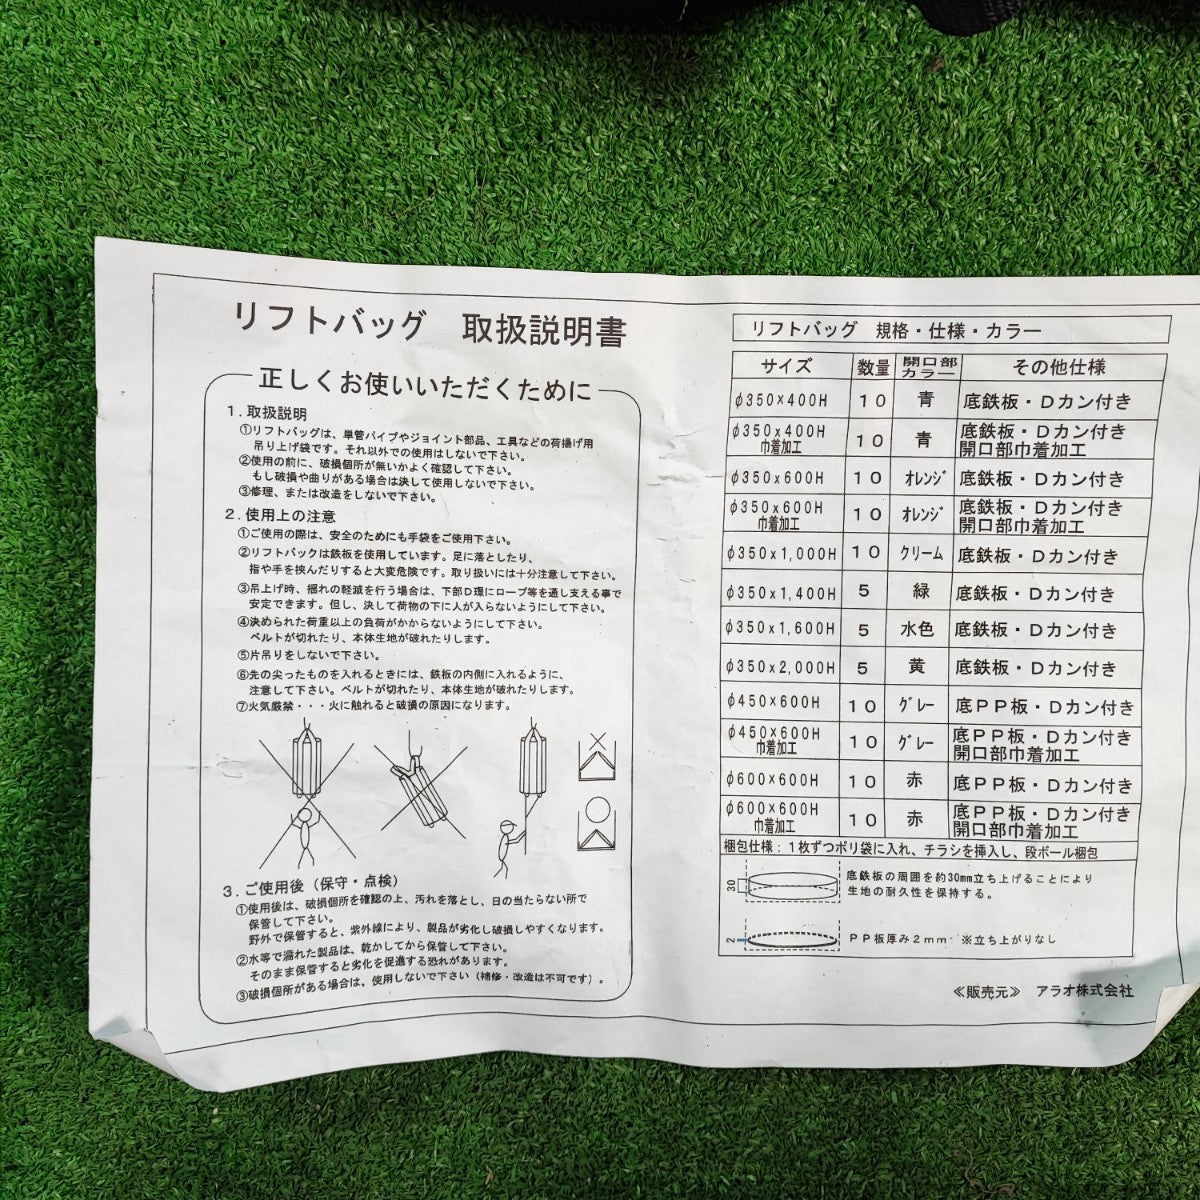 リフトバッグ 取扱説明書
正しくお使いいただくために
1. 取扱説明
①リフトバッグは、単管パイプやジョイント部品、工具などの荷揚げ用
吊り上げ袋です。それ以外での使用はしないで下さい。
②使用の前に、破損個所が無いかよく確認して下さい。
もし破損や曲りがある場合は決して使用しないで下さい。
③修理、または改造をしないで下さい。
2. 使用上の注意
①ご使用の際は、安全のためにも手袋をご使用下さい。
②リフトバックは鉄板を使用しています。足に落としたり、
指や手を挟んだりすると大変危険です。取り扱いには十分注意して下さい。
③吊上げ時、揺れの軽減を行う場合は、下部D環にロープ等を通し支える事で
安定できます。但し、決して荷物の下に人が入らないようにして下さい。
④決められた荷重以上の負荷がかからないようにして下さい。
ベルトが切れたり、本体生地が破れたりします。
⑤片吊りをしないで下さい。
⑥先の尖ったものを入れるときには、鉄板の内側に入れるように、
注意して下さい。ベルトが切れたり、本体生地が破れたりします。
⑦火気厳禁・・・火に触れると破損の原因になります。
3. ご使用後(保守・点検)
①使用後は、破損個所を確認の上、汚れを落とし、日の当たらない所で
保管して下さい。
野外で保管すると、紫外線により、製品が劣化し破損しやすくなります。
②水等で濡れた製品は、乾かしてから保管して下さい。
そのまま保管すると劣化を促進する恐れがあります。
③破損個所がある場合は、使用しないで下さい(補修・改造は不可です)。
リフトバッグ 規格・仕様・カラー
サイズ 数量 開口部カラー その他仕様
φ350×400H 10 青 底鉄板・Dカン付き
φ350x400H 巾着加工 10 青 底鉄板・Dカン付き 開口部巾着加工
φ350x600H 10 ｵﾚﾝｼﾞ 底鉄板・Dカン付き
φ350x600H 巾着加工 10 ｵﾚﾝｼﾞ 底鉄板・Dカン付き 開口部巾着加工
φ350x1,000H 10 クリーム 底鉄板・Dカン付き
φ350x1,400H 5 緑 底鉄板・Dカン付き
φ350x1,600H 5 水色 底鉄板・Dカン付き
φ350x2,000H 5 黄 底鉄板・Dカン付き
φ450x600H 10 ｸﾞﾚｰ 底PP板・Dカン付き
φ450x600H 巾着加工 10 ｸﾞﾚｰ 底PP板・Dカン付き 開口部巾着加工
φ600x600H 10 赤 底PP板・Dカン付き
φ600x600H 巾着加工 10 赤 底PP板・Dカン付き 開口部巾着加工
梱包仕様：1枚ずつポリ袋に入れ、チラシを挿入し、段ボール梱包
30
底鉄板の周囲を約30mm立ち上げることにより
生地の耐久性を保持する。
2
PP板厚み2mm ※立ち上がりなし
≪販売元≫ アラオ株式会社